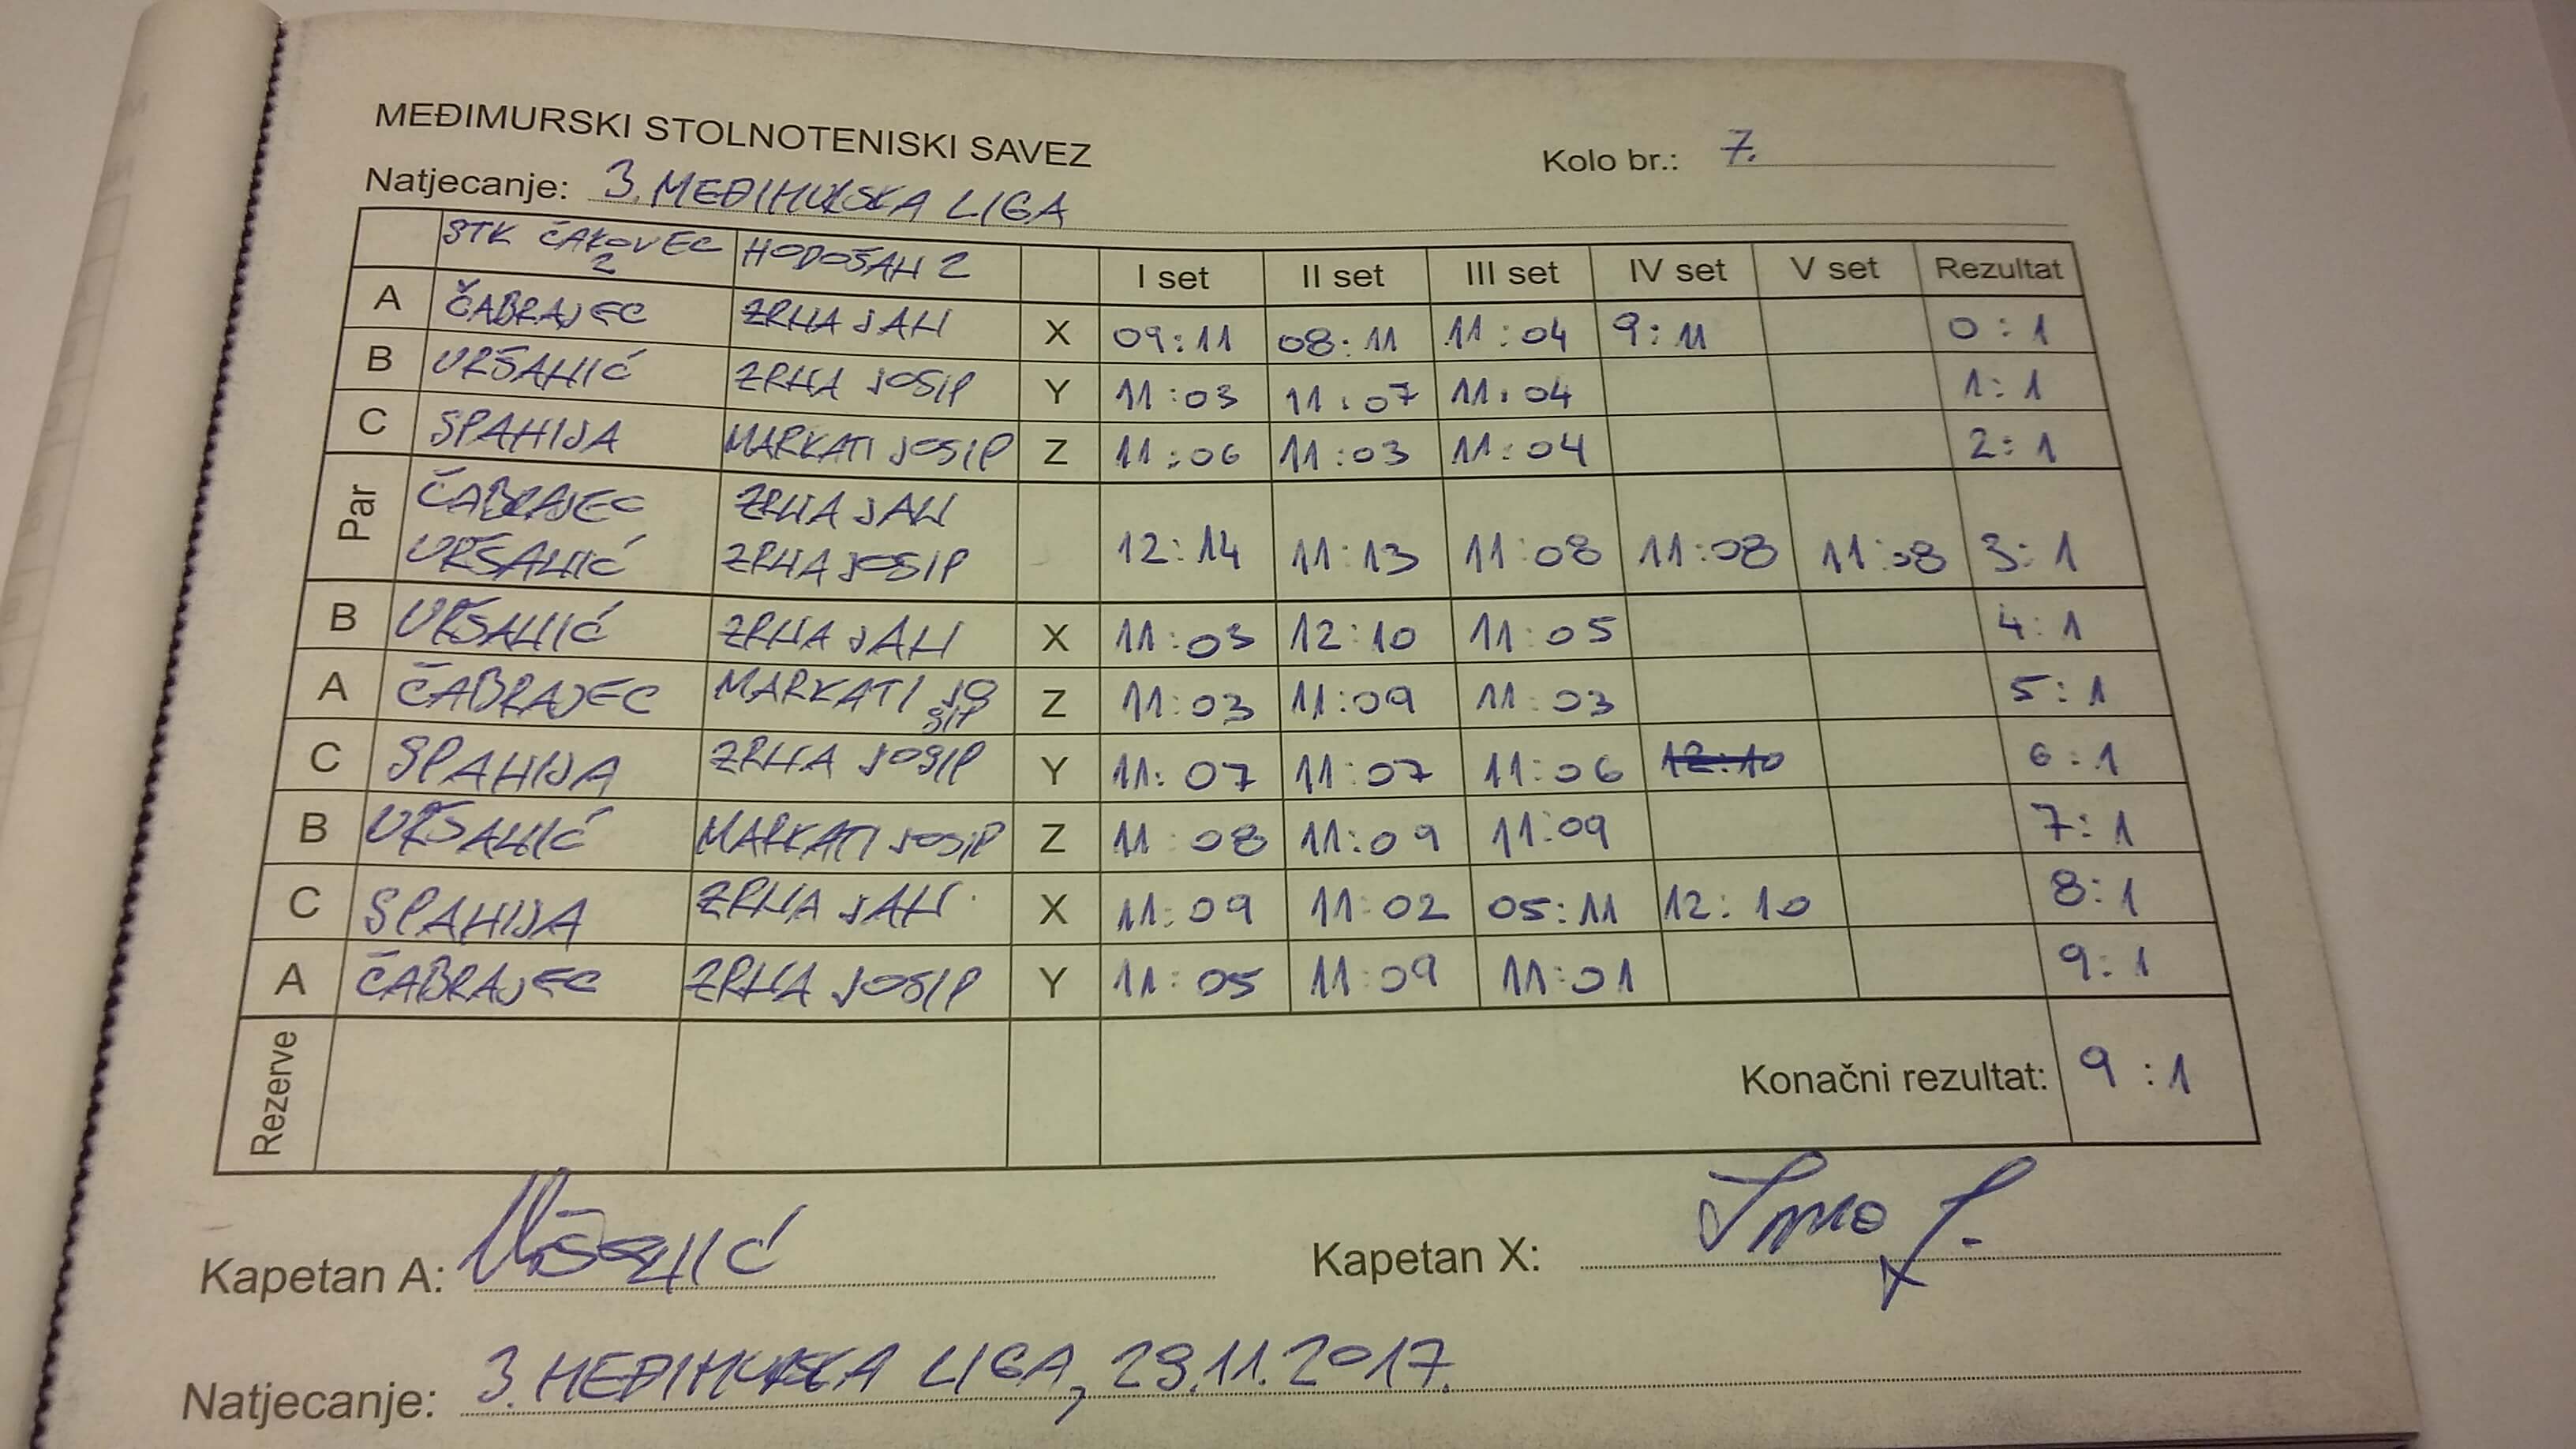 MEĐIMURSKI STOLNOTENISKI SAVEZ
Kolo br.: 7.
Natjecanje: 3. MEĐIMURSKA LIGA
STK ČAKOVEC 2 HODOŠAN 2 I set II set III set IV set V set Rezultat
A ČABRAJEC ZRNA JAN X 09:11 08:11 11:04 9:11 0:1
B VRŠANIĆ ZRNA JOSIP Y 11:03 11:07 11:04 1:1
C SPAHIJA MARKATI JOSIP Z 11:06 11:03 11:04 2:1
Par ČABRAJEC ZRNA JAN
VRŠANIĆ ZRNA JOSIP 12:14 11:13 11:08 11:08 11:08 3:1
B VRŠANIĆ ZRNA JAN X 11:03 12:10 11:05 4:1
A ČABRAJEC MARKATI JOSIP Z 11:03 11:09 11:03 5:1
C SPAHIJA ZRNA JOSIP Y 11:07 11:07 11:06 12:10 6:1
B VRŠANIĆ MARKATI JOSIP Z 11:08 11:09 11:09 7:1
C SPAHIJA ZRNA JAN X 11:09 11:02 05:11 12:10 8:1
A ČABRAJEC ZRNA JOSIP Y 11:05 11:09 11:01 9:1
Rezerve Konačni rezultat: 9:1
Kapetan A: Vršanić Kapetan X:
Natjecanje: 3. MEĐIMURSKA LIGA, 29.11.2017.